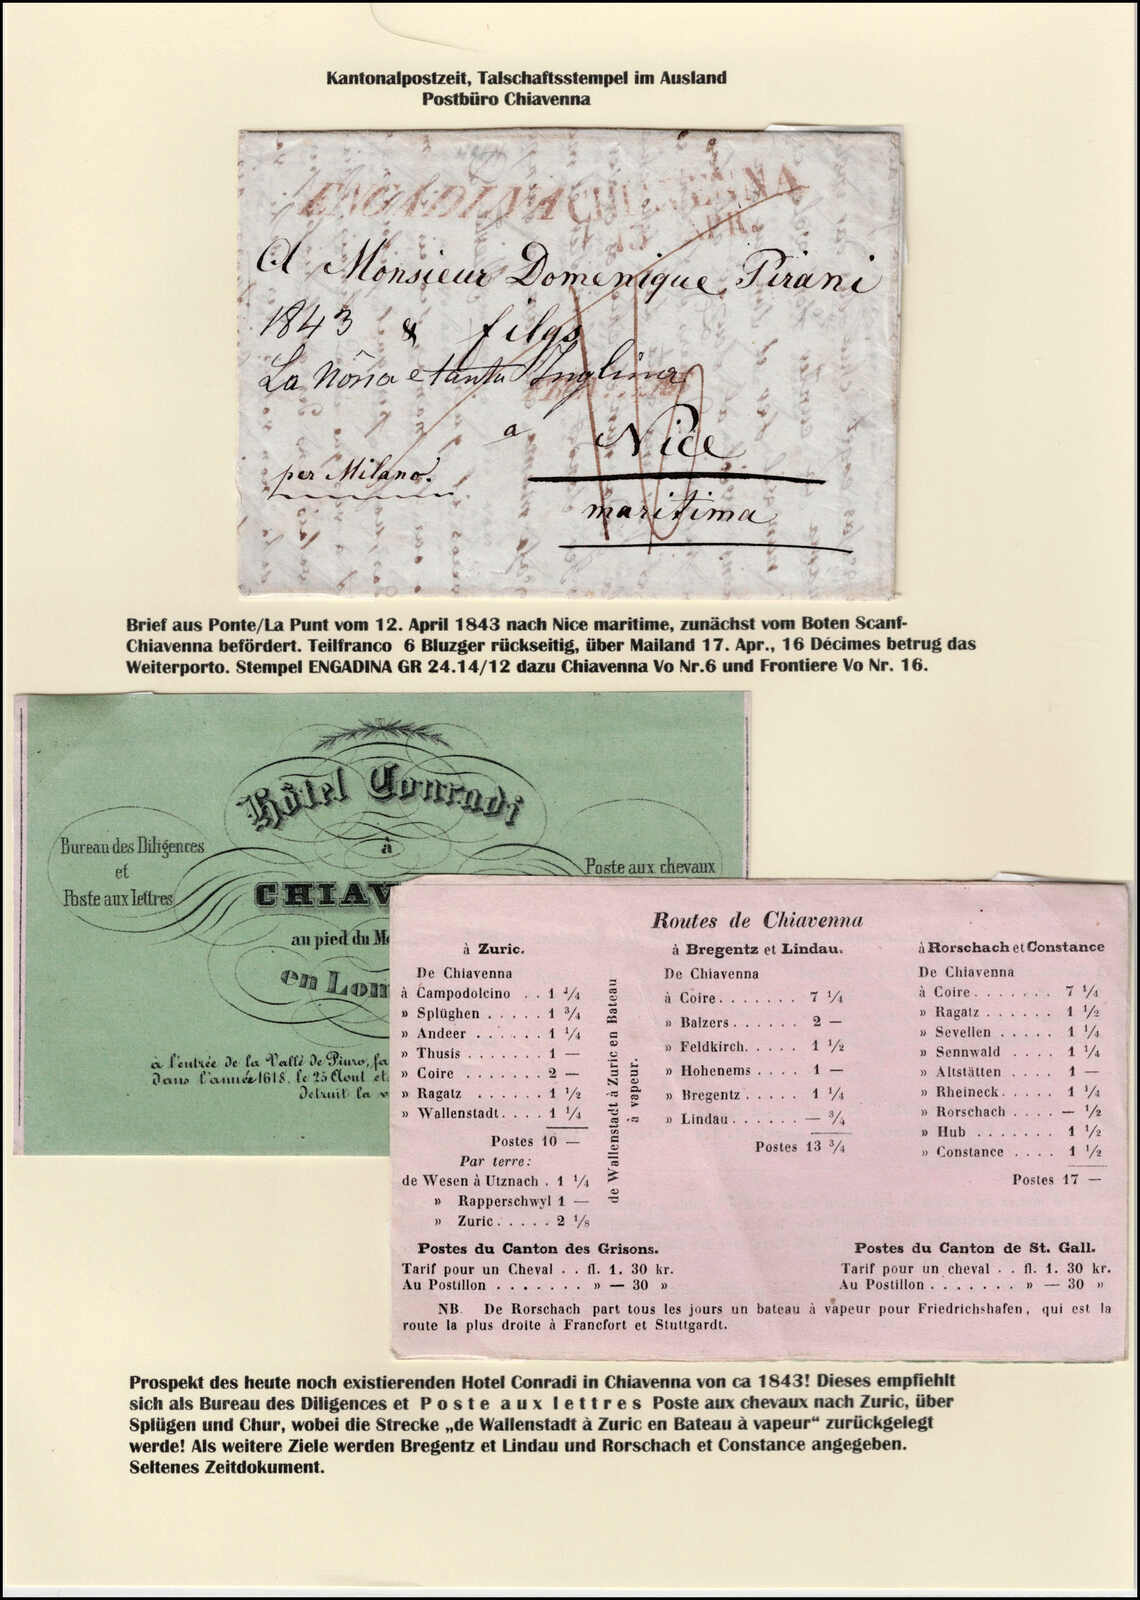 Kantonalpostzeit, Talschaftsstempel im Ausland
Postbüro Chiavenna
ENGADINA CHIAVENNA
13 APR.
A Monsieur Domenique Pirani
1843 & filgs
La Nôna e tanta Inglina
a Nice
per Milano.
maritima
Brief aus Ponte/La Punt vom 12. April 1843 nach Nice maritime, zunächst vom Boten Scanf-
Chiavenna befördert. Teilfranco 6 Bluzger rückseitig, über Mailand 17. Apr., 16 Décimes betrug das
Weiterporto. Stempel ENGADINA GR 24.14/12 dazu Chiavenna Vo Nr.6 und Frontiere Vo Nr. 16.
Hôtel Conradi
à
Bureau des Diligences
et
Poste aux lettres
Poste aux chevaux
CHIAV
au pied du Mo
en Lom
à l'entrée de la Vallé de Piuro, fa
dans l'année 1618. le 25 Aout et
detruit la v
Routes de Chiavenna
à Zuric.
De Chiavenna
à Campodolcino . . 1 1/4
» Splüghen . . . . . 1 3/4
» Andeer . . . . . . 1 1/4
» Thusis . . . . . . . 1 —
» Coire . . . . . . . 2 —
» Ragatz . . . . . . 1 1/2
» Wallenstadt . . . . 1 1/4
Postes 10 —
Par terre:
de Wesen à Utznach . 1 1/4
» Rapperschwyl 1 —
» Zuric . . . . . 2 1/8
de Wallenstadt à Zuric en Bateau
à vapeur.
à Bregentz et Lindau.
De Chiavenna
à Coire . . . . . . . 7 1/4
» Balzers . . . . . . 2 —
» Feldkirch . . . . . 1 1/2
» Hohenems . . . . 1 —
» Bregentz . . . . . 1 1/4
» Lindau . . . . . . — 3/4
Postes 13 3/4
à Rorschach et Constance
De Chiavenna
à Coire . . . . . . . 7 1/4
» Ragatz . . . . . . 1 1/2
» Sevellen . . . . . 1 1/4
» Sennwald . . . . 1 1/4
» Altstätten . . . . 1 —
» Rheineck . . . . . 1 1/4
» Rorschach . . . . — 1/2
» Hub . . . . . . . 1 1/2
» Constance . . . . 1 1/2
Postes 17 —
Postes du Canton des Grisons.
Tarif pour un Cheval . . fl. 1. 30 kr.
Au Postillon . . . . . . . » — 30 »
Postes du Canton de St. Gall.
Tarif pour un cheval . . fl. 1. 30 kr.
Au Postillon . . . . . . . » — 30 »
NB. De Rorschach part tous les jours un bateau à vapeur pour Friedrichshafen, qui est la
route la plus droite à Francfort et Stuttgardt.
Prospekt des heute noch existierenden Hotel Conradi in Chiavenna von ca 1843! Dieses empfiehlt
sich als Bureau des Diligences et P o s t e a u x l e t t r e s Poste aux chevaux nach Zuric, über
Splügen und Chur, wobei die Strecke „de Wallenstadt à Zuric en Bateau à vapeur“ zurückgelegt
werde! Als weitere Ziele werden Bregentz et Lindau und Rorschach et Constance angegeben.
Seltenes Zeitdokument.